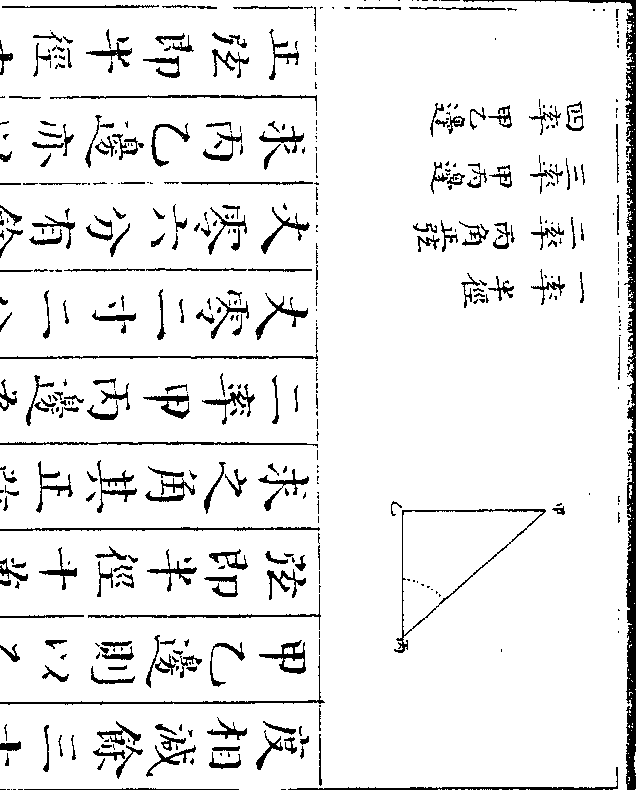 一率 半徑
二率 丙角正弦
三率 甲丙邊
四率 甲乙邊
甲
乙
丙
度相減餘三十
甲乙邊則以
弦即半徑十
求之角其正
二率甲丙邊
丈零二寸二
丈零六分有餘
求丙乙邊亦以
正弦即半徑